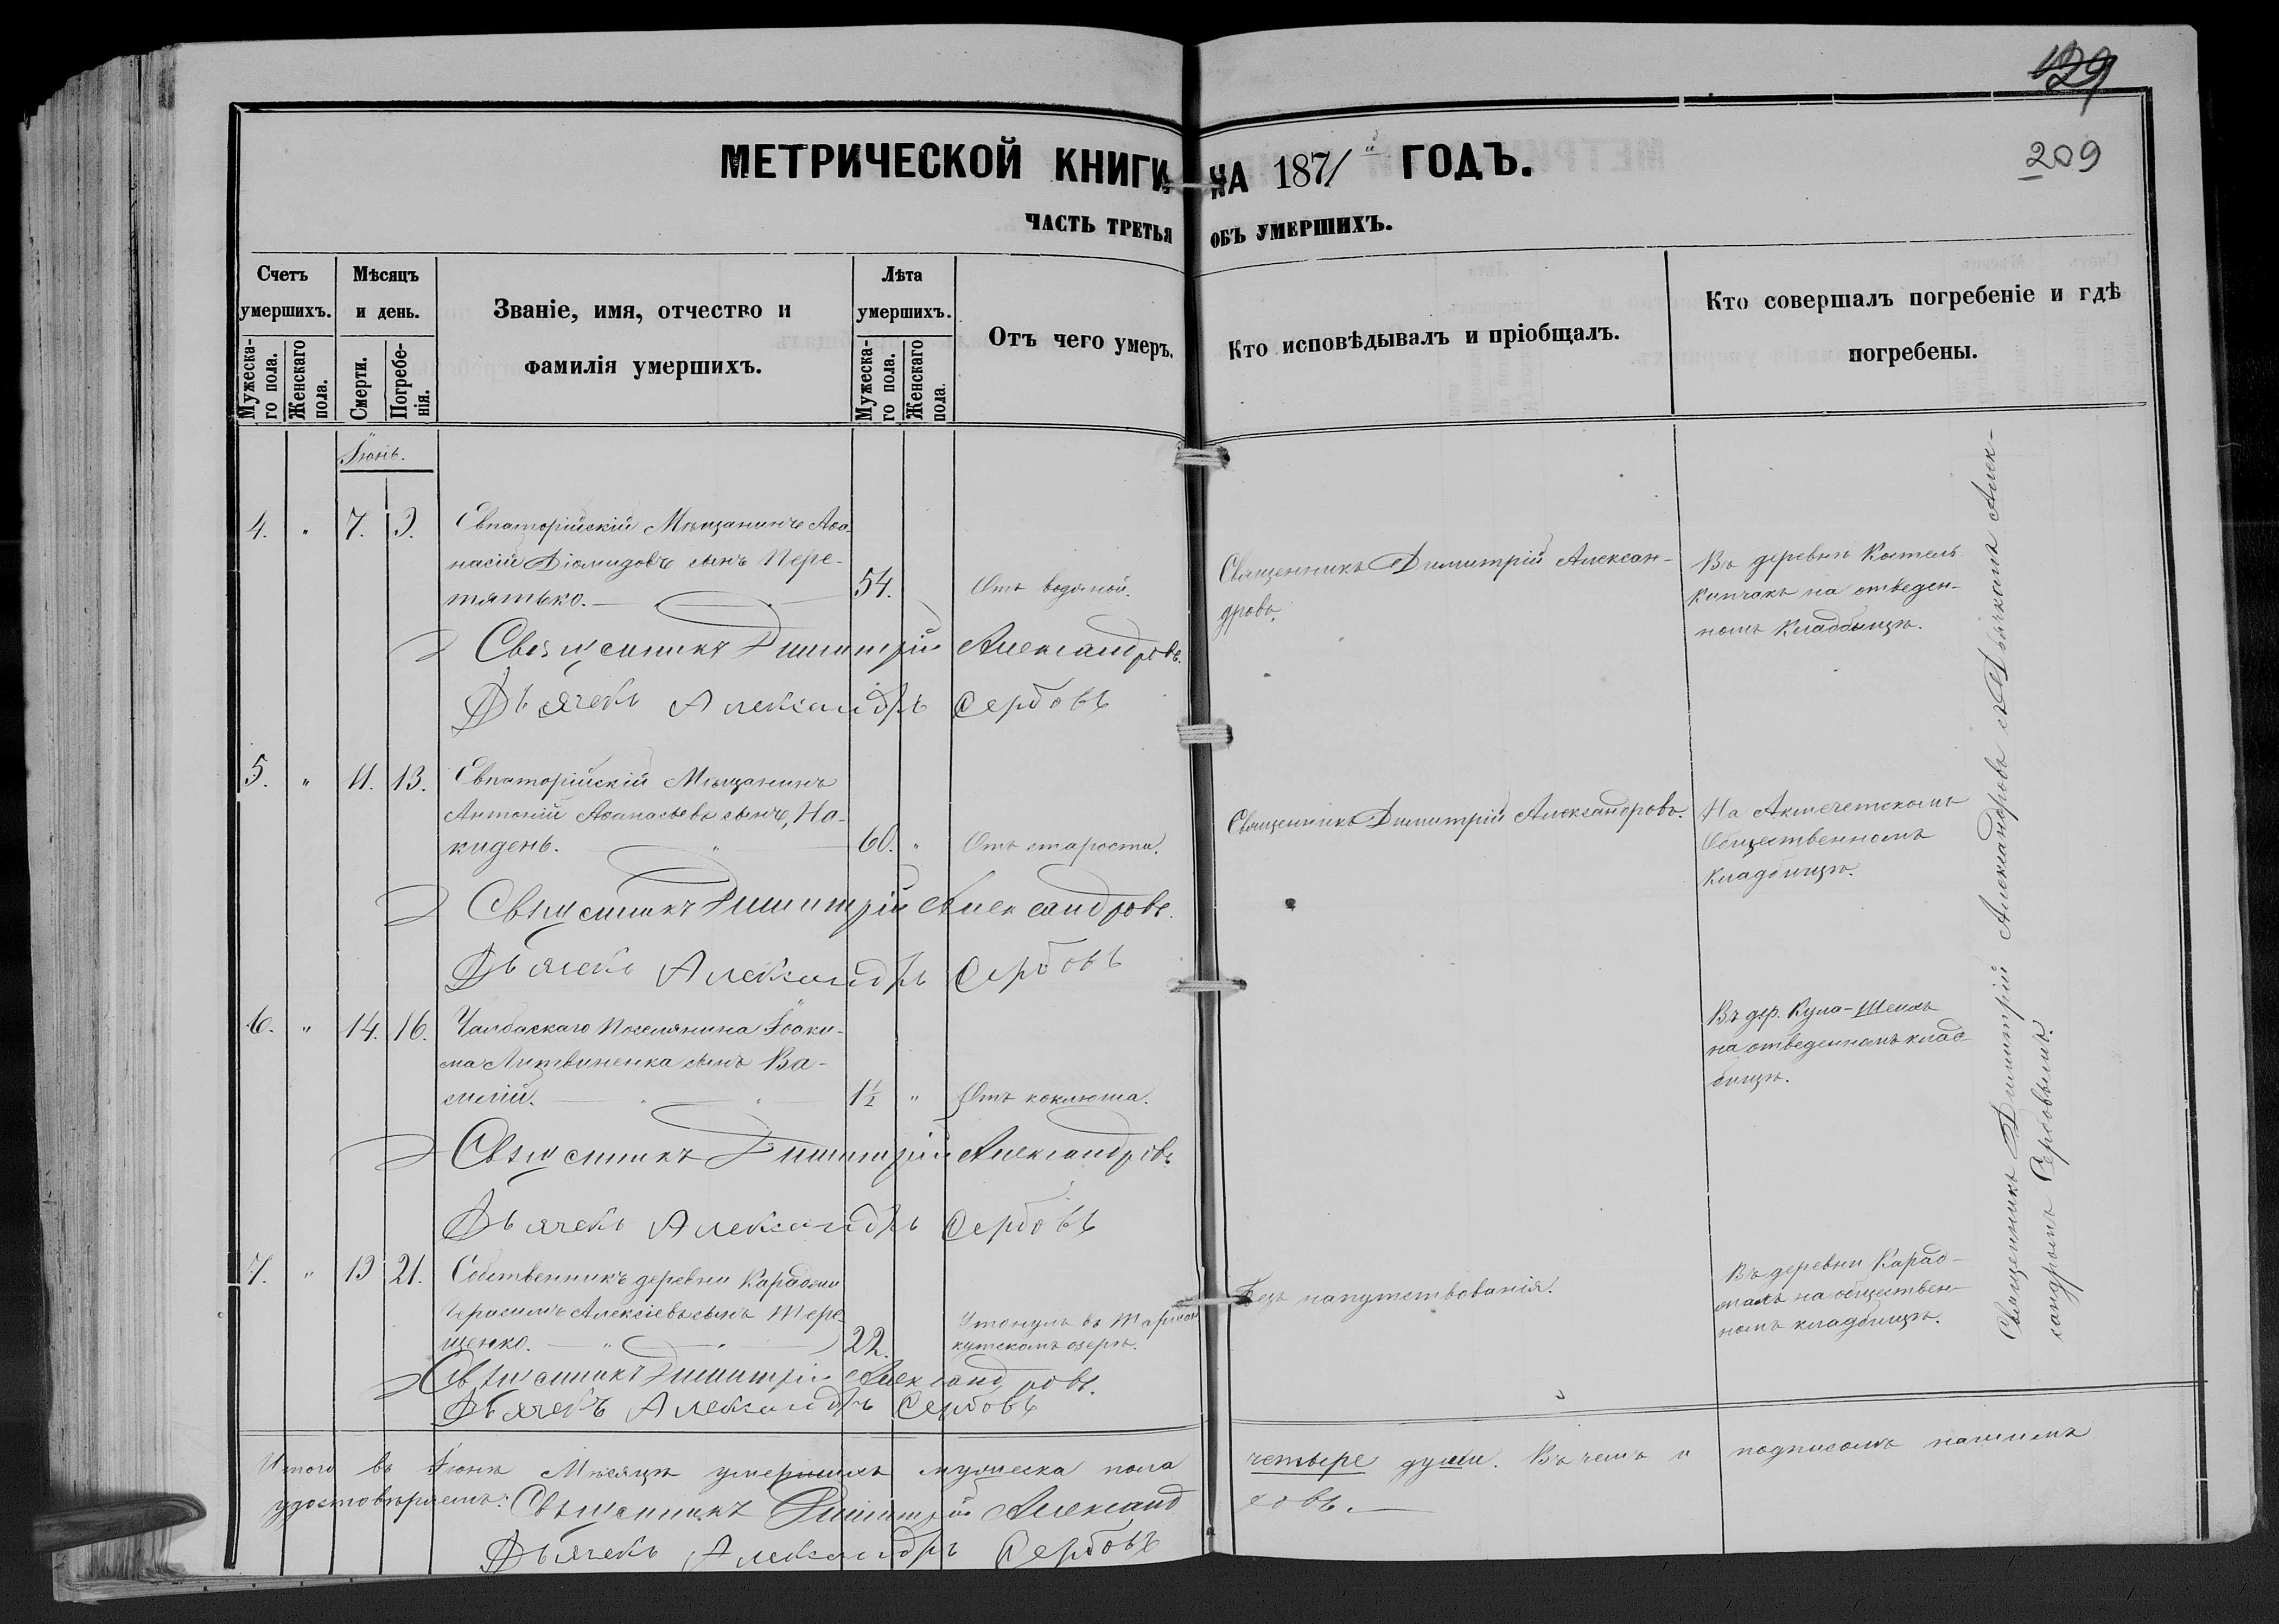 129
209
МЕТРИЧЕСКОЙ КНИГИ НА 1871й ГОДЪ.
ЧАСТЬ ТРЕТЬЯ ОБЪ УМЕРШИХЪ.
Счетъ умершихъ.
Мужеска-го пола.
Женскаго пола.
Мѣсяцъ и день.
Смерти.
Погребе-нія.
Званіе, имя, отчество и
фамилія умершихъ.
Лѣта умершихъ.
Мужеска-го пола.
Женскаго пола.
Отъ чего умеръ.
Кто исповѣдывалъ и пріобщалъ.
Кто совершалъ погребеніе и гдѣ
погребены.
Іюнь.
4. " 7. 9. Евпаторійскій Мѣщанинъ Аѳа-
насій Діомидовъ сынъ Пере-
тятько. 54. Отъ водяной.
Священникъ Димитрій Алексан-
дровъ.
Въ деревнѣ Контель
Кипчакъ на отведен-
номъ кладбищѣ.
Священникъ Димитрій Александровъ.
Дьячекъ Александръ Сербовъ
5. " 11. 13. Евпаторійскій Мѣщанинъ
Антоній Аѳанасьевъ сынъ, На-
кидень. " 60. " Отъ старости.
Священникъ Димитрій Александровъ.
На Акмечетскомъ
Общественномъ
кладбищѣ.
Священникъ Димитрій Александровъ.
Дьячекъ Александръ Сербовъ
6. " 14. 16. Чалбаскаго Поселянина Іоаки-
ма Литвиненка сынъ Ва-
силій. " " 1½ " Отъ коклюша.
Въ дер. Кула-
на отведенномъ клад-
бищѣ.
Священникъ Димитрій Александровъ.
Дьячекъ Александръ Сербовъ
7. " 19 21. Собственникъ деревни
Герасимъ Алексіевъ сынъ Тере-
щенко. " " 22. Утонулъ въ
кутскомъ озерѣ.
Безъ напутствованія.
Въ деревни Карад-
на обществен-
номъ кладбищѣ.
Священникъ Димитрій Александровъ.
Дьячекъ Александръ Сербовъ
Священникъ Димитрій Александровъ съ Дьячкомъ Алек-
сандромъ Сербовымъ.
Итого въ Іюнѣ Мѣсяцѣ умершихъ мужеска пола четыре души. Въ чемъ и подписомъ нашимъ
удостовѣряемъ: Священникъ Димитрій Александ ровъ.
Дьячекъ Александръ Сербовъ